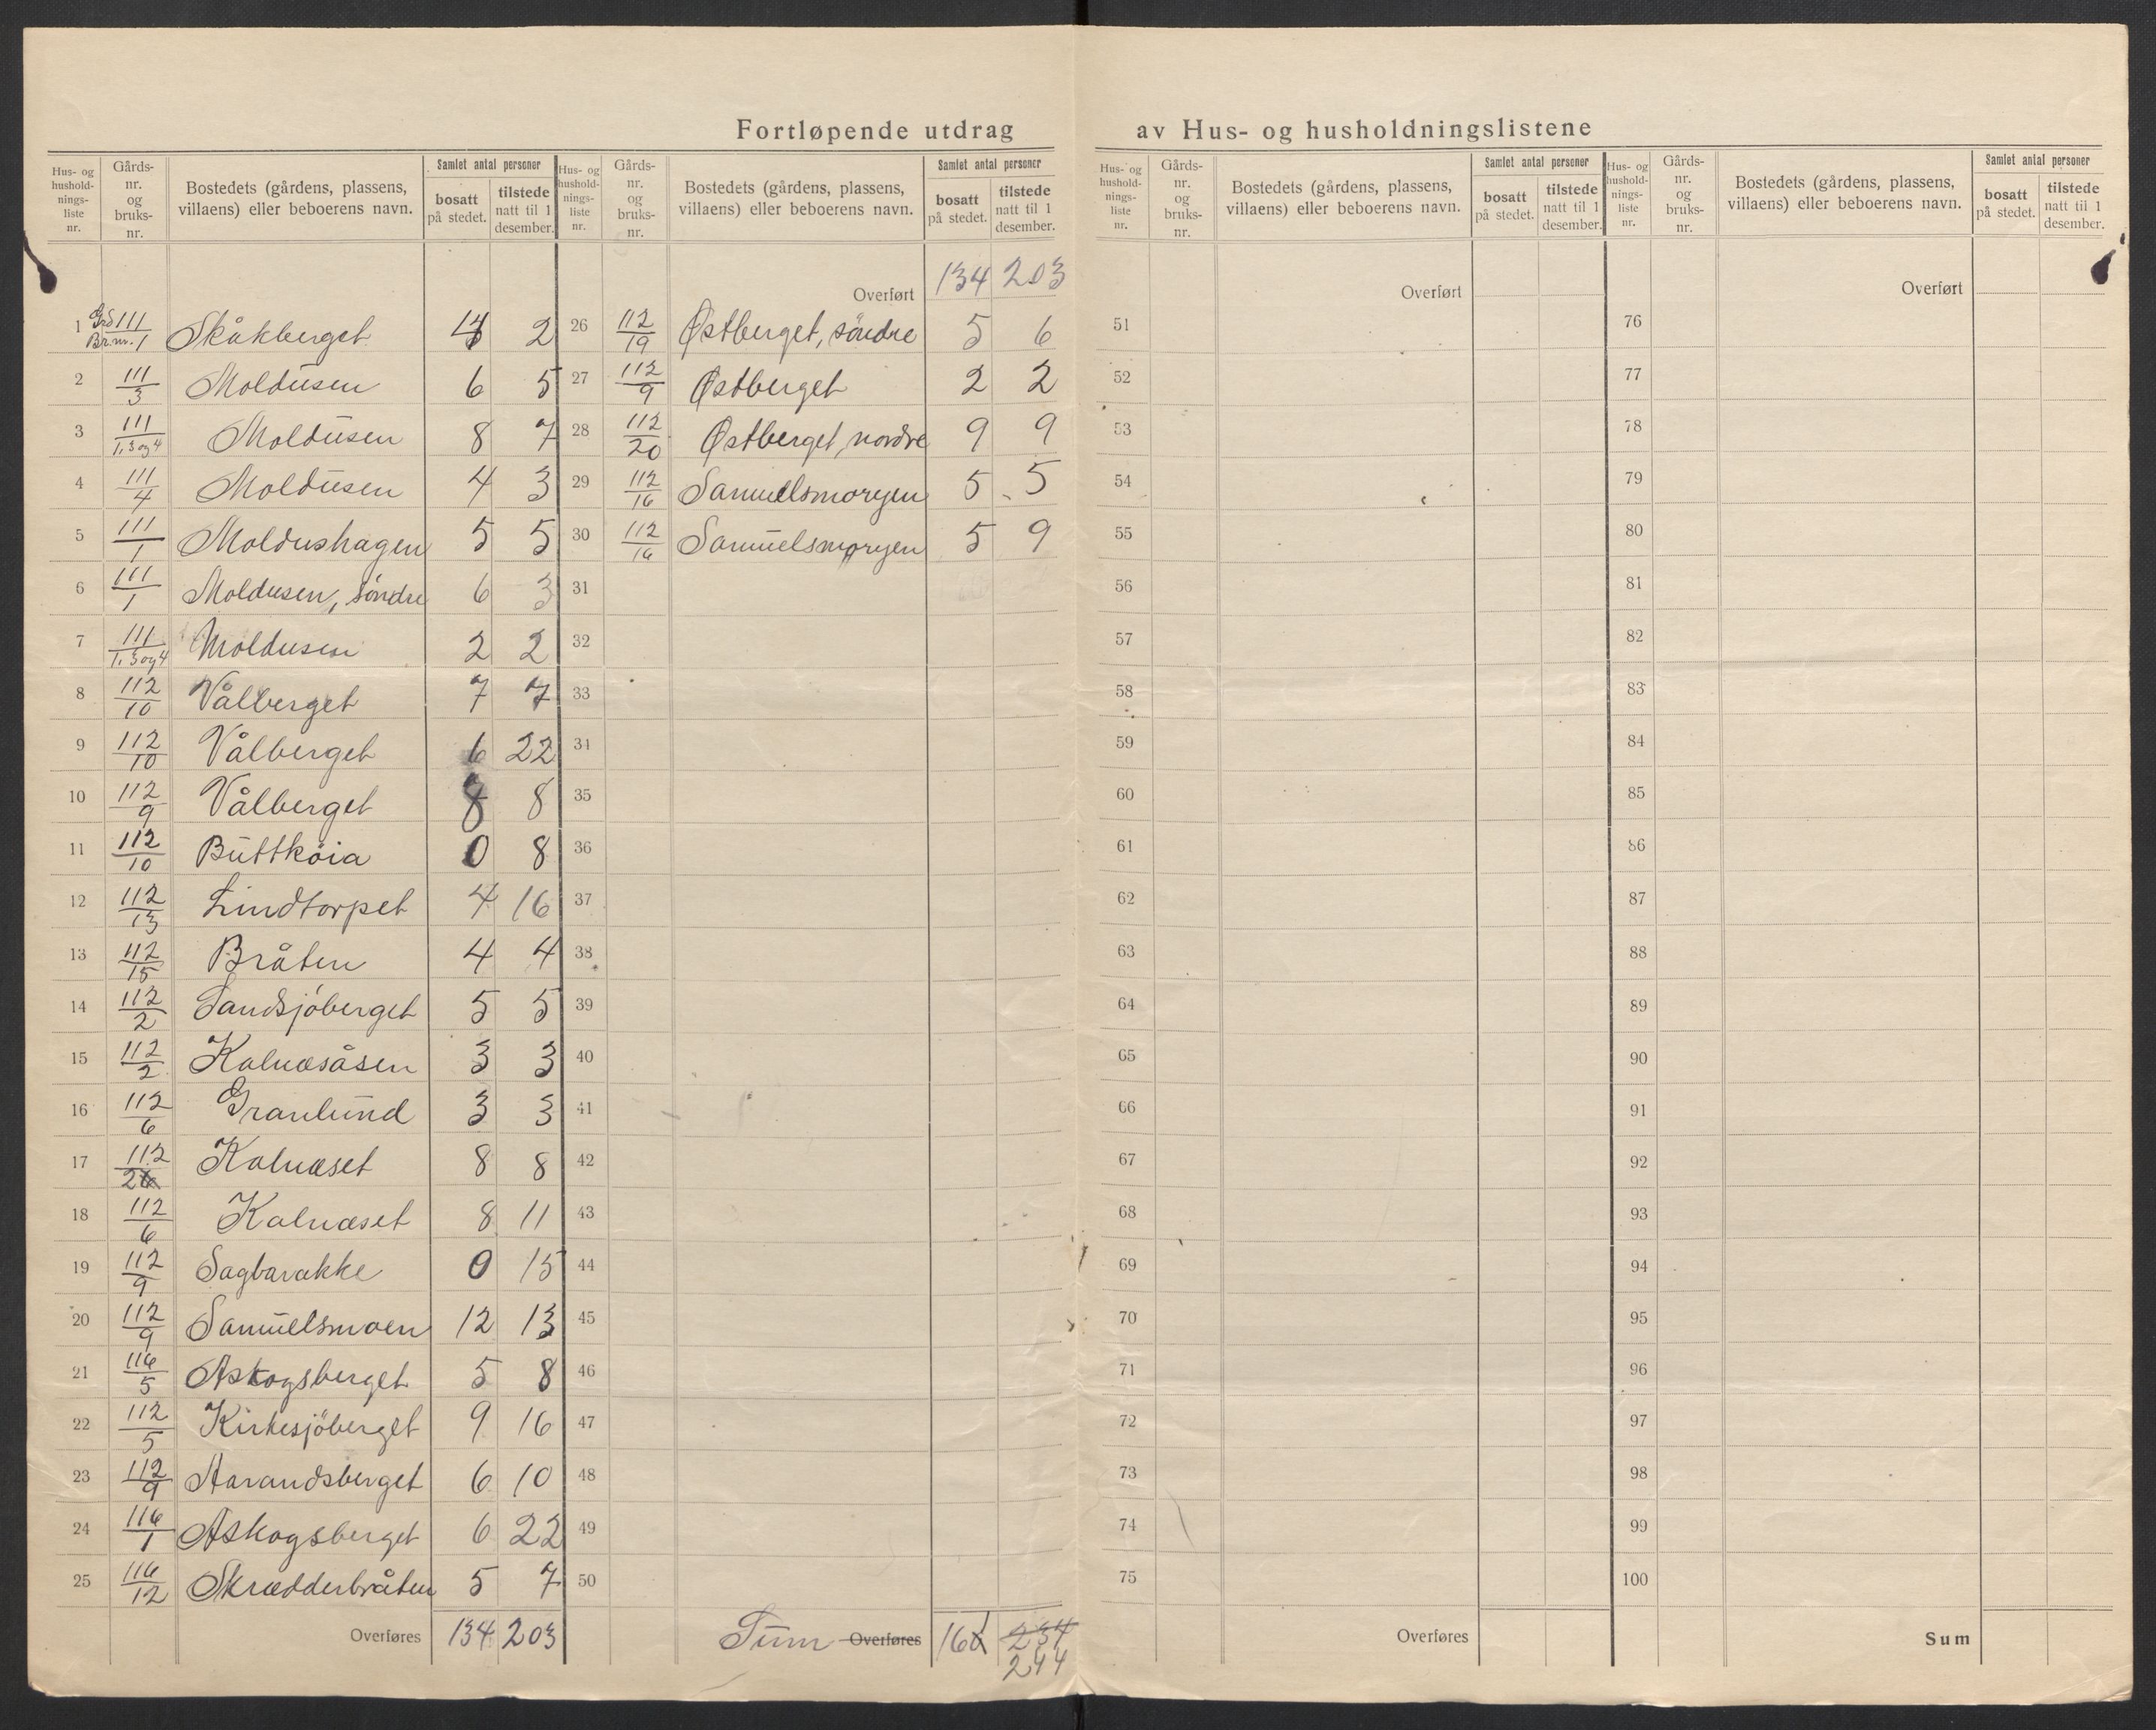 Fortløpende utdrag av Hus- og husholdningslistene
Hus- og hushold-nings-liste nr. Gårds-nr. og bruks-nr. Bostedets (gårdens, plassens, villaens) eller beboerens navn. Samlet antal personer bosatt på stedet. tilstede natt til 1 desember.
1 Grd 111 Br.nr. 1 Skåkberget 2
2 111/3 Moldusen 6 5
3 111/1,3 og 4 Moldusen 8 7
4 111/4 Moldusen 4 3
5 111/1 Moldushagen 5 5
6 111/1 Moldusen, söndre 6 3
7 111/1,3 og 4 Moldusen 2 2
8 112/10 Vålberget 7 7
9 112/10 Vålberget 6 22
10 112/9 Vålberget 8 8
11 112/10 Büttköia 0 8
12 112/13 Lindtorpet 4 16
13 112/15 Bråten 4 4
14 112/2 Sandsjöberget 5 5
15 112/2 Kalnæsåsen 3 3
16 112/6 Granlund 3 3
17 112/2 Kalnæset 8 8
18 112/6 Kalnæset 8 11
19 112/9 Sagbarakke 0 15
20 112/9 Samuelsmoen 12 13
21 116/5 Askogsberget 5 8
22 112/5 Kirkesjöberget 9 16
23 112/9 Harandsberget 6 10
24 116/1 Askogsberget 6 22
25 116/12 Skrædderbråten 5 7
Overføres 134 203
Hus- og hushold-nings-liste nr. Gårds-nr. og bruks-nr. Bostedets (gårdens, plassens, villaens) eller beboerens navn. Samlet antal personer bosatt på stedet. tilstede natt til 1 desember.
Overført 134 203
26 112/19 Østberget, söndre 5 6
27 112/9 Østberget 2 2
28 112/20 Østberget, nordre 9 9
29 112/16 Samuelsmoryen 5 5
30 112/16 Samuelsmoryen 5 9
31
32
33
34
35
36
37
38
39
40
41
42
43
44
45
46
47
48
49
50
Sum Overføres 234
244
Hus- og hushold-nings-liste nr. Gårds-nr. og bruks-nr. Bostedets (gårdens, plassens, villaens) eller beboerens navn. Samlet antal personer bosatt på stedet. tilstede natt til 1 desember.
Overført
51
52
53
54
55
56
57
58
59
60
61
62
63
64
65
66
67
68
69
70
71
72
73
74
75
Overføres
Hus- og hushold-nings-liste nr. Gårds-nr. og bruks-nr. Bostedets (gårdens, plassens, villaens) eller beboerens navn. Samlet antal personer bosatt på stedet. tilstede natt til 1 desember.
Overført
76
77
78
79
80
81
82
83
84
85
86
87
88
89
90
91
92
93
94
95
96
97
98
99
100
Sum